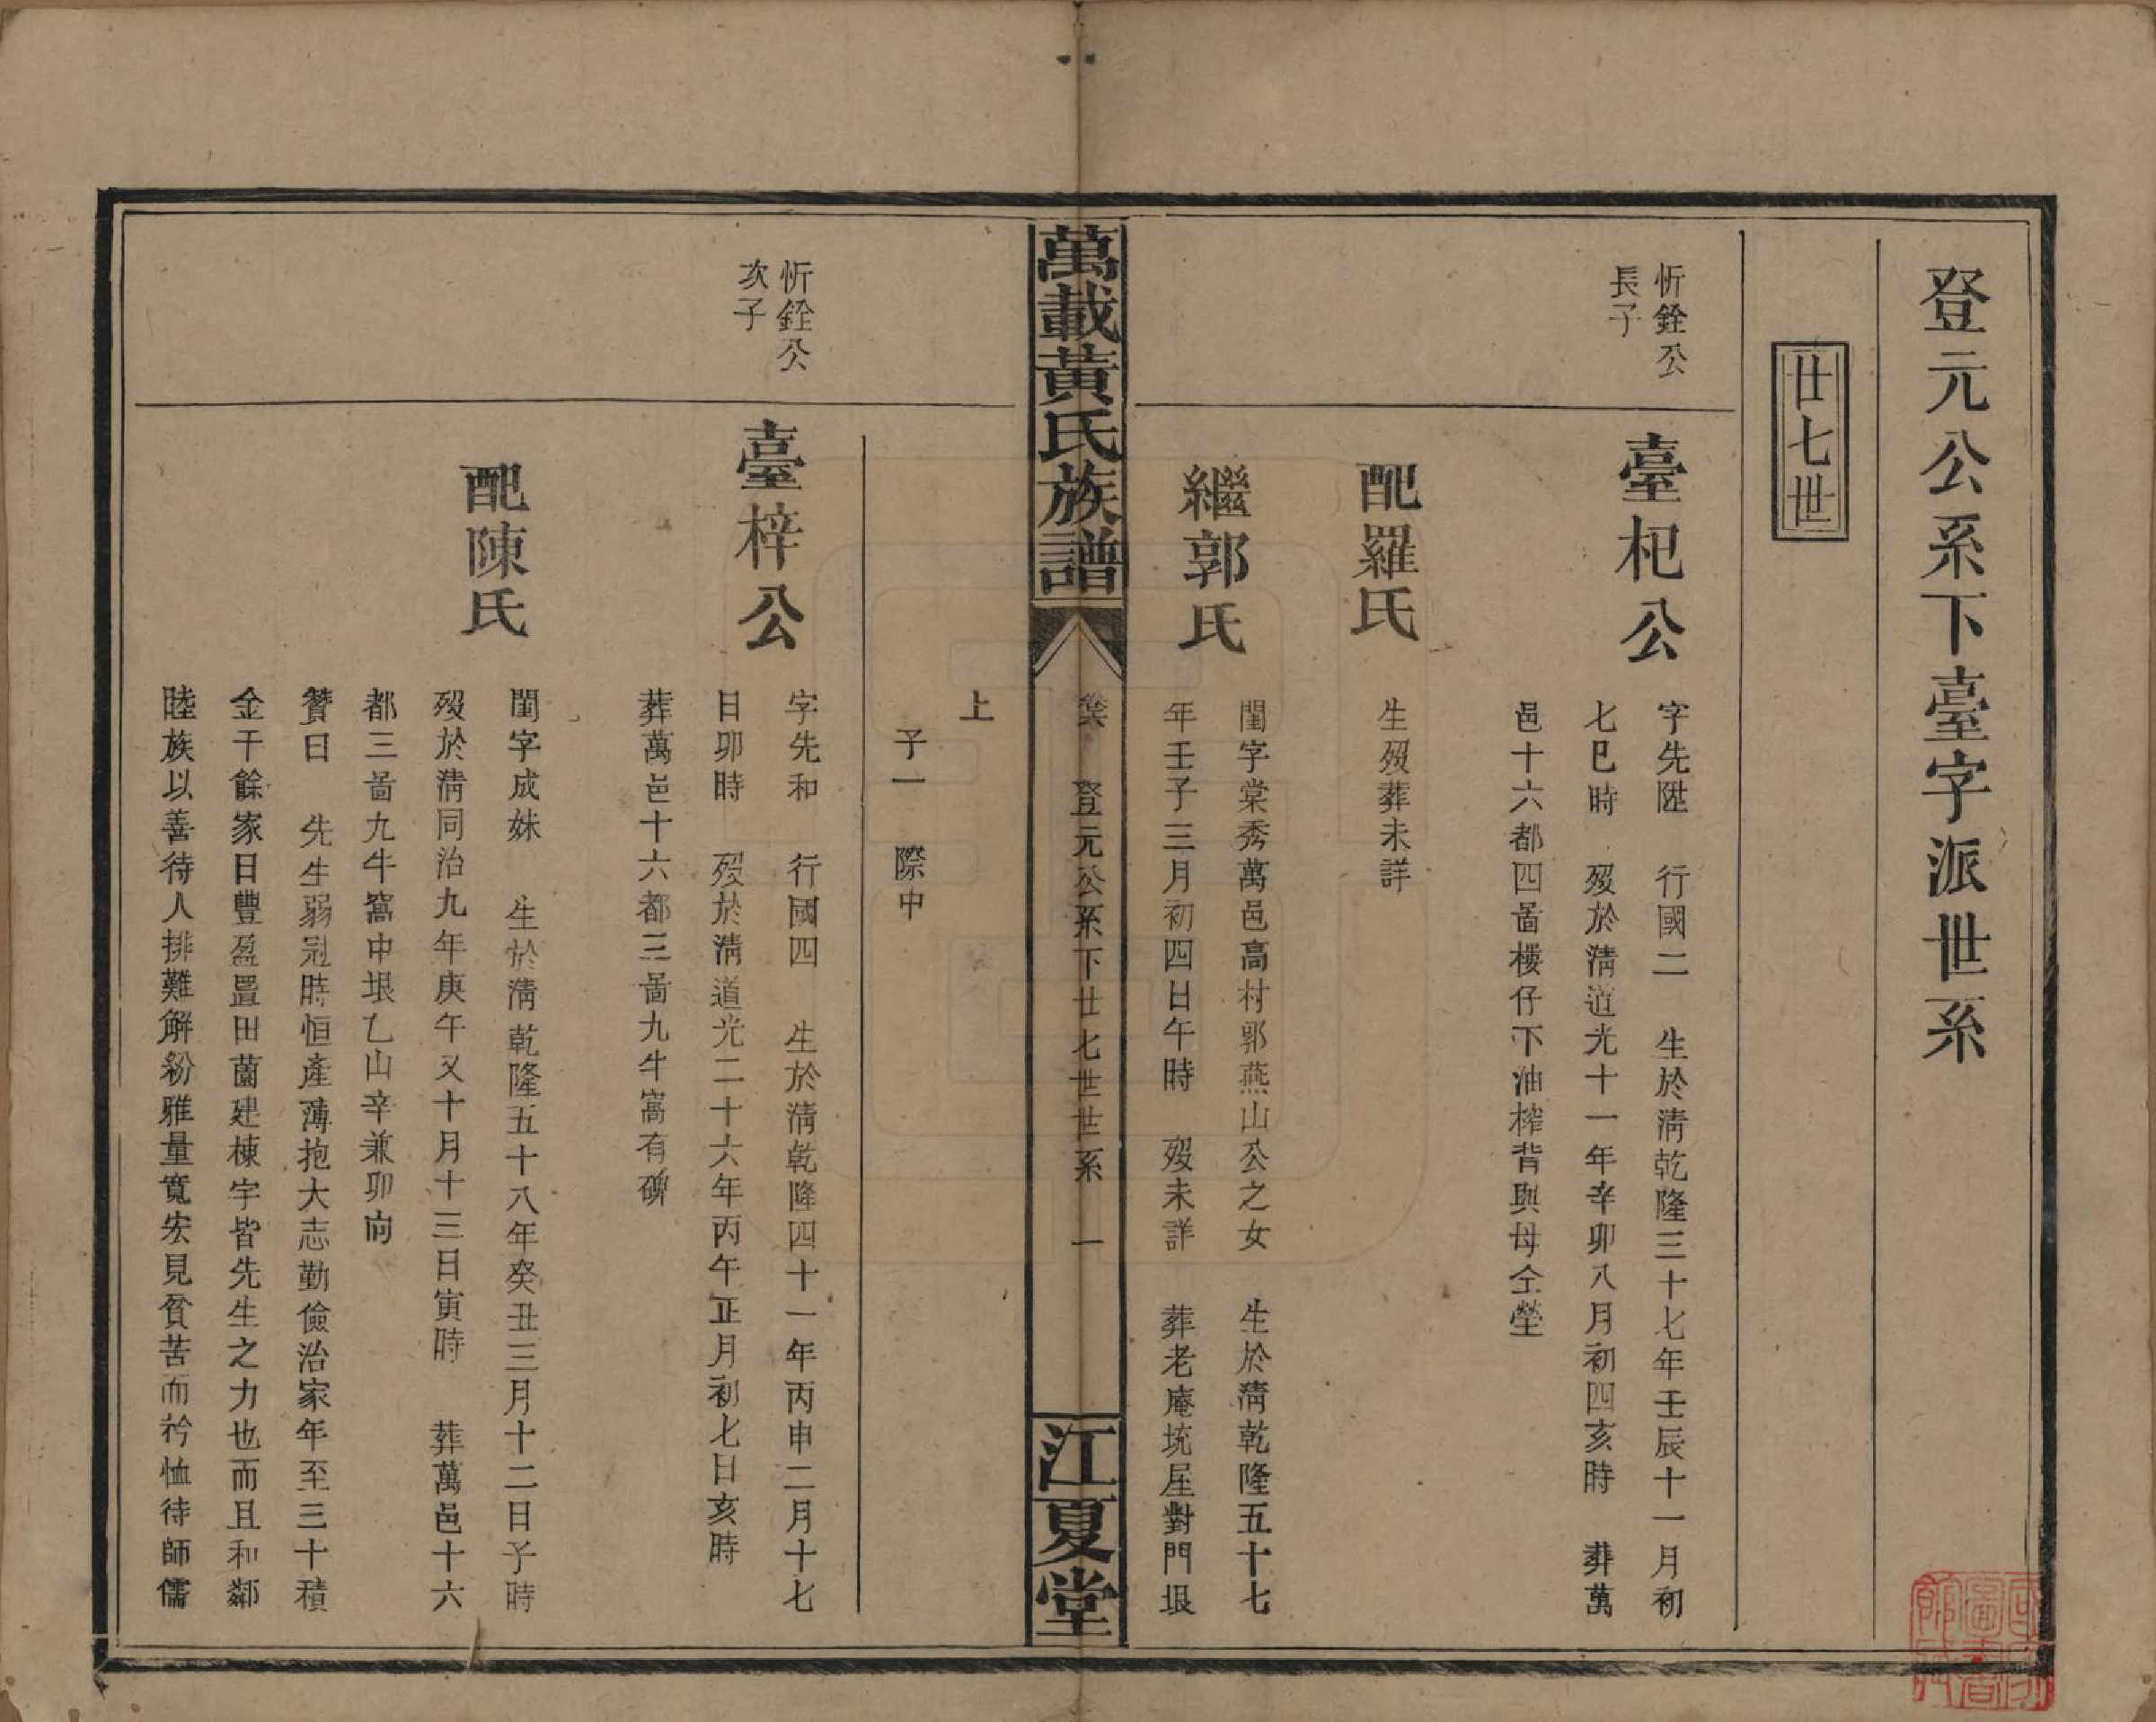 登元公系下臺字派世系
廿七世
忻銓公
長子
臺杞公
字先陞　行國二　生於清乾隆三十七年壬辰十一月初
七巳時　歿於清道光十一年辛卯八月初四亥時　葬萬
邑十六都四啚樓仔下油榨背與母仝塋
配羅氏
生歿葬未詳
繼郭氏
閨字棠秀萬邑高村郭燕山公之女　生於清乾隆五十七
年壬子三月初四日午時　歿未詳　葬老庵坑屋對門垠
萬載黃氏族譜
登元公系下廿七世世系　一
江夏堂
上
子一　際中
忻銓公
次子
臺梓公
字先和　行國四　生於清乾隆四十一年丙申二月十七
日卯時　歿於清道光二十六年丙午正月初七日亥時
葬萬邑十六都三啚九牛窩有碑
配陳氏
閨字成妹　生於清乾隆五十八年癸丑三月十二日子時
歿於清同治九年庚午又十月十三日寅時　葬萬邑十六
都三啚九牛窩中垠乙山辛兼卯向
贊曰　先生弱冠時恒產薄抱大志勤儉治家年至三十積
金千餘家日豐盈置田薗建棟宇皆先生之力也而且和鄰
睦族以善待人排難解紛雅量寬宏見貧苦而衿恤待師儒